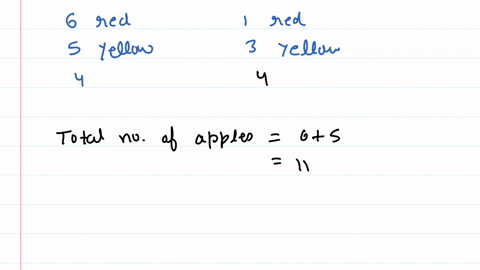 6 red 1 red
5 yellow 3 yellow
4 4
Total no. of apples = 6+5
= 11